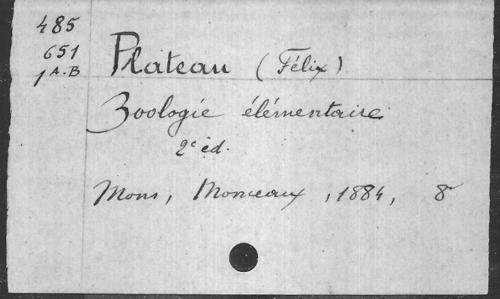 485
651
1 A.B
Plateau (Félix)
Zoologie élémentaire
2e éd.
Mons, Monceaux, 1884, 8°